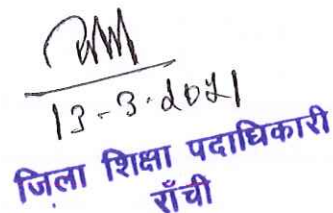 13-3-2021
जिला शिक्षा पदाधिकारी
राँची